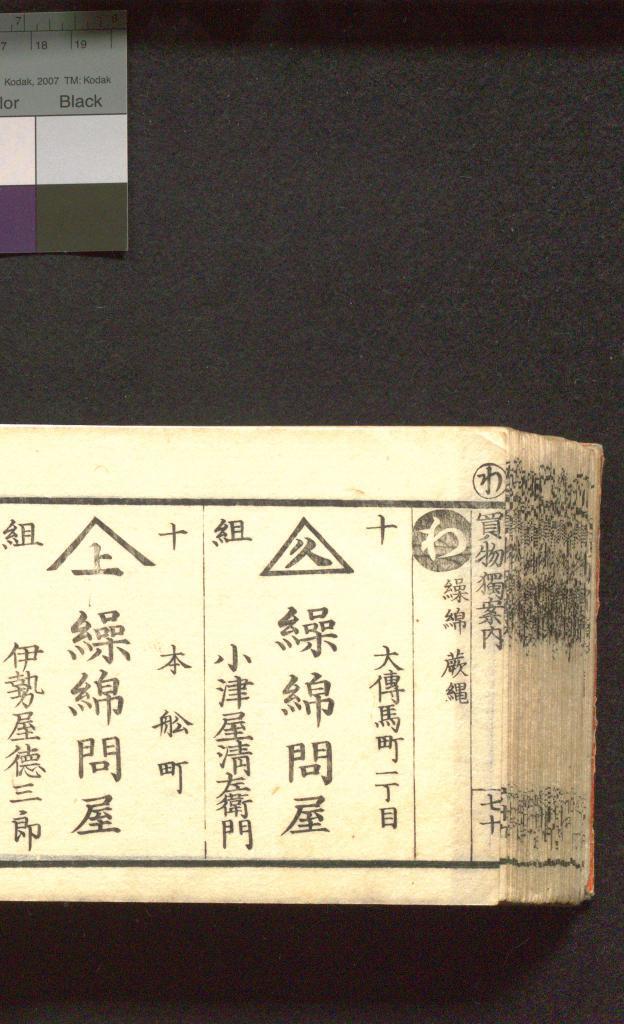 7 8
7 18 19
Kodak, 2007 TM: Kodak
lor Black
わ
買物獨案内
七十
わ
繰綿 蕨縄
十
組
久
大傳馬町一丁目
繰綿問屋
小津屋清左衛門
十
組
上
本舩町
繰綿問屋
伊勢屋德三郎